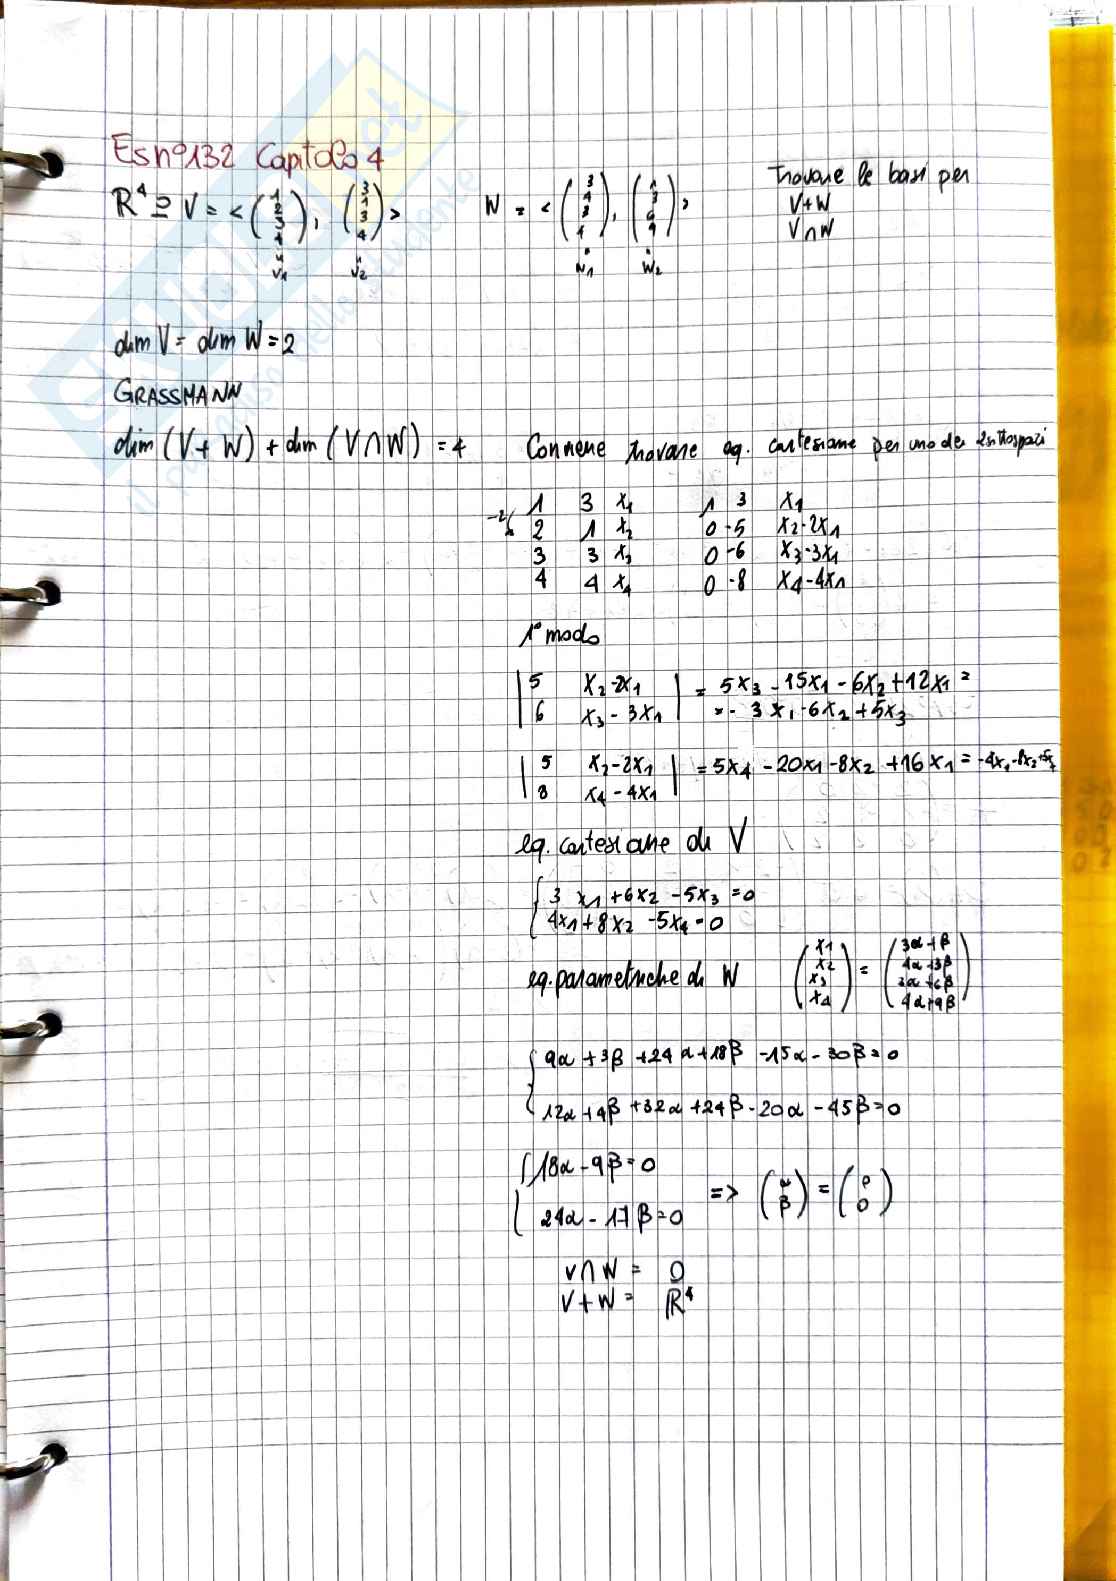 Es n°132 Capitolo 4
R⁴ ⊇ V = < (1 2 3 4), (3 1 3 4) > W = < (3 4 3 4), (1 3 6 9) > trovare le basi per
v₁ v₂ w₁ w₂ V+W
V∩W
dim V = dim W = 2
GRASSMANN
dim (V + W) + dim (V∩W) = 4 Conviene trovare eq. cartesiane per uno dei 2 sottospazi
-2 1 3 x₁ 1 3 x₁
2 1 x₂ 0 -5 x₂-2x₁
3 3 x₃ 0 -6 x₃-3x₁
4 4 x₄ 0 -8 x₄-4x₁
1° modo
| 5 x₂-2x₁ | = 5x₃ - 15x₁ - 6x₂ + 12x₁ =
| 6 x₃ - 3x₁ | = - 3x₁ - 6x₂ + 5x₃
| 5 x₂-2x₁ | = 5x₄ - 20x₁ - 8x₂ + 16x₁ = -4x₁-8x₂+5x₄
| 8 x₄ - 4x₁ |
eq. cartesiane di V
{ 3x₁ + 6x₂ - 5x₃ = 0
4x₁ + 8x₂ - 5x₄ = 0
eq. parametriche di W (x₁ x₂ x₃ x₄) = (3α+β 4α+3β 3α+6β 4α+9β)
{ 9α + 3β + 24α + 18β - 15α - 30β = 0
12α + 4β + 32α + 24β - 20α - 45β = 0
{ 18α - 9β = 0
24α - 17β = 0 => (α β) = (0 0)
V∩W = 0
V+W = R⁴